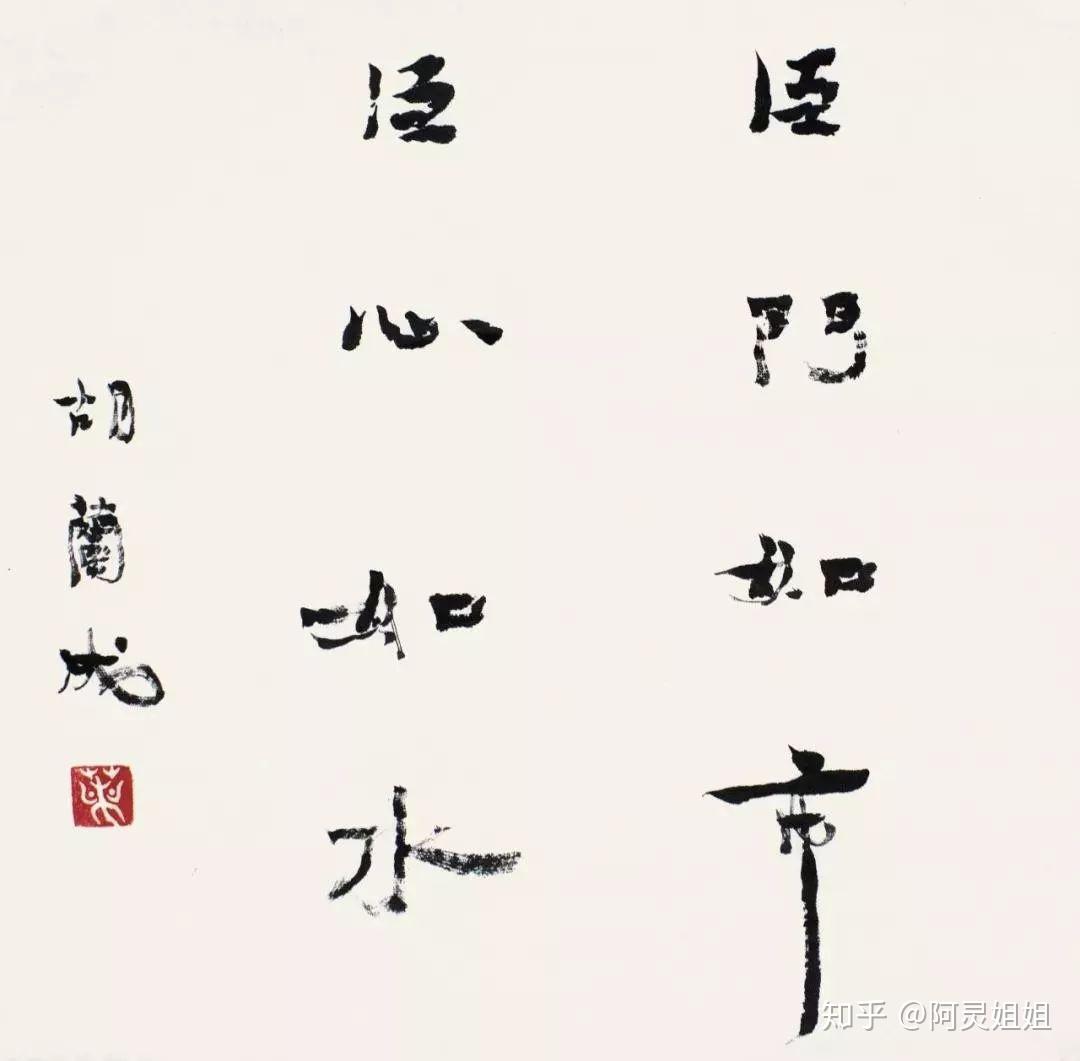 臣門如市
臣心如水
胡蘭成
知乎 @阿灵姐姐